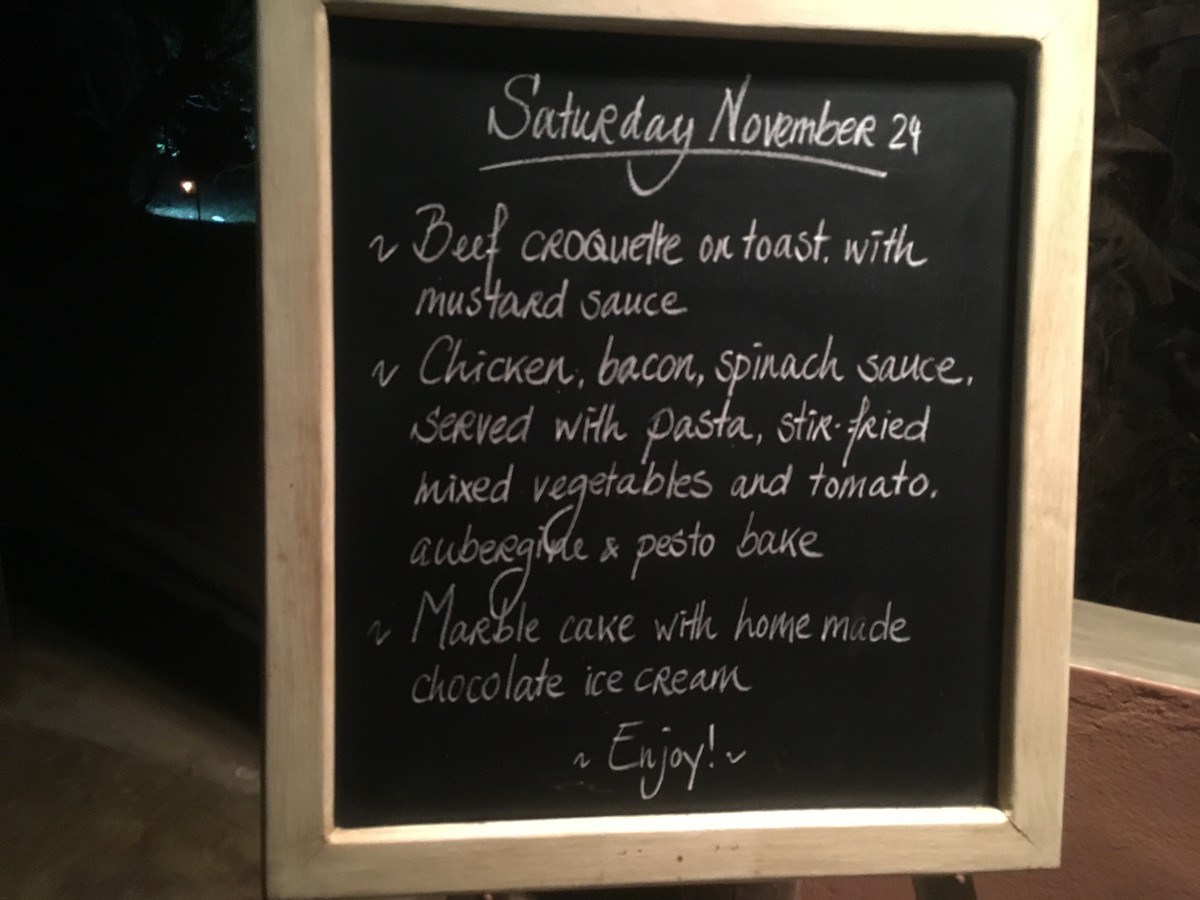 Saturday November 24
~ Beef croquette on toast. with
mustard sauce
~ Chicken, bacon, spinach sauce,
served with pasta, stir-fried
mixed vegetables and tomato,
aubergine & pesto bake
~ Marble cake with home made
chocolate ice cream
~ Enjoy! ~